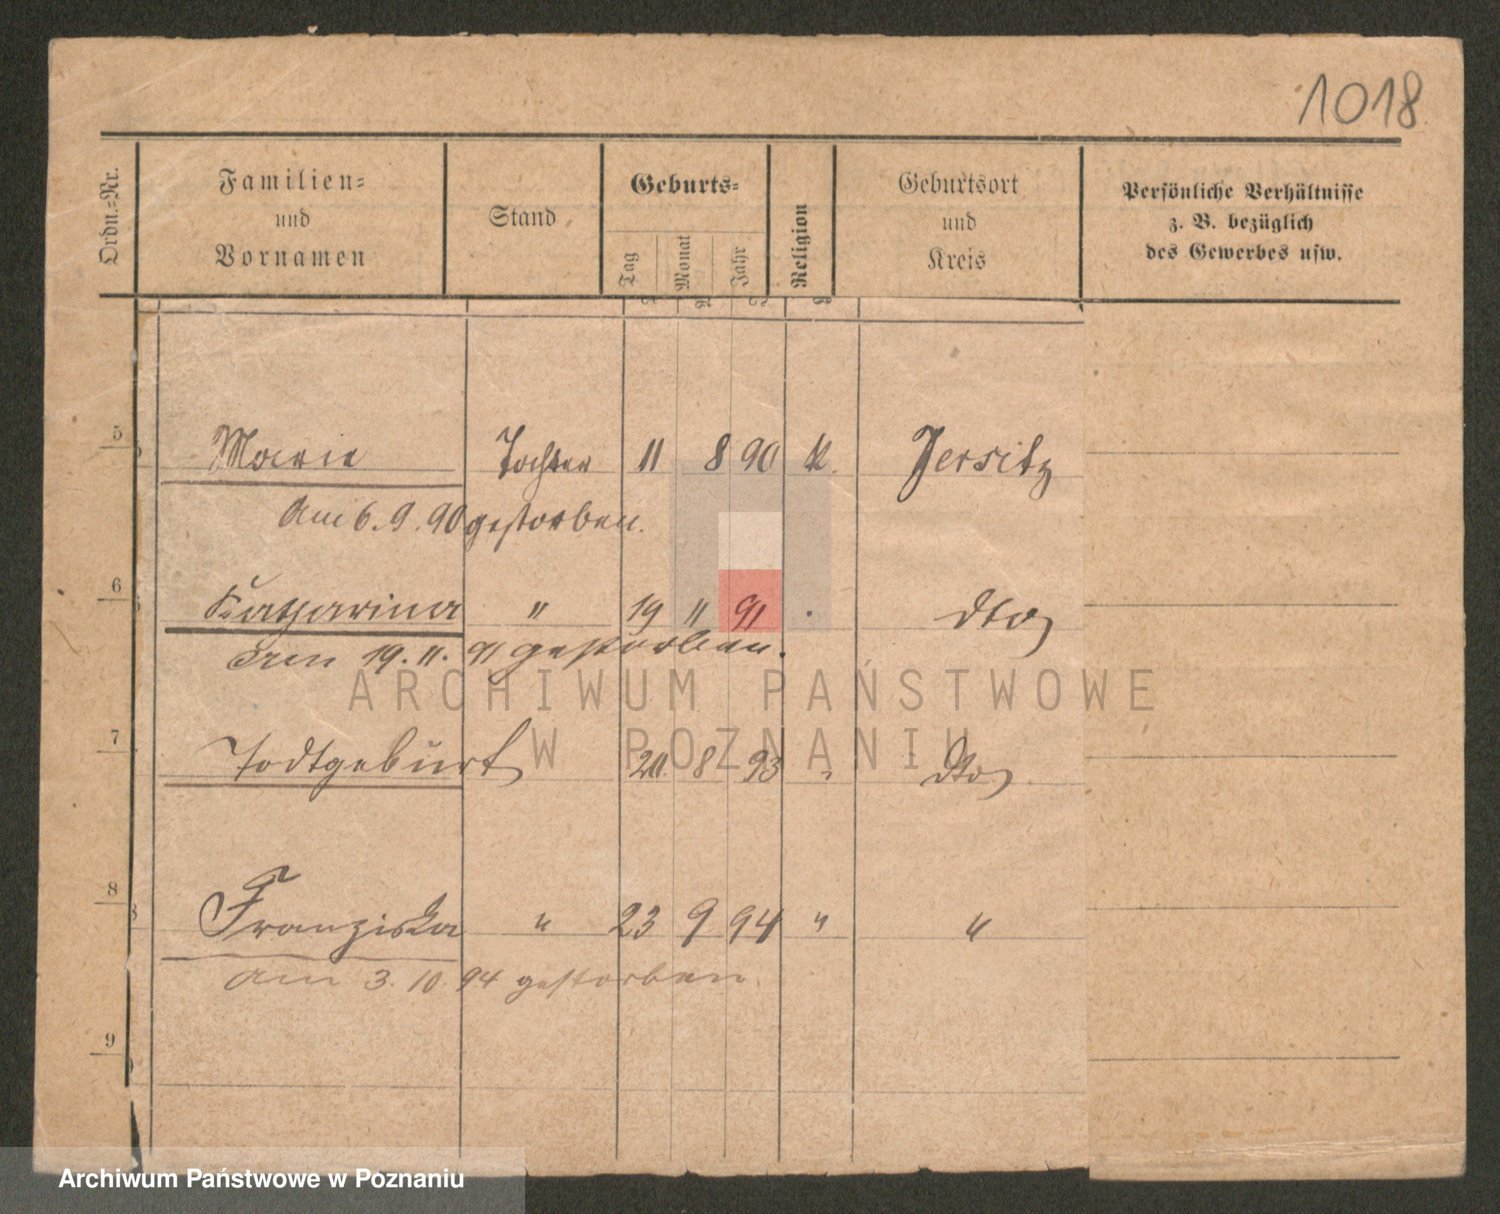 1018
Ordn.-Nr.
Familien-
und
Vornamen
Stand
Geburts-
Tag
Monat
Jahr
Religion
Geburtsort
und
Kreis
Persönliche Verhältnisse
z. B. bezüglich
des Gewerbes usw.
5 Marie Tochter 11 8 90 k. Jersitz
Am 6.9.90 gestorben.
6 Katharina " 19 11 91 . dto
am 19.11.91 gestorben.
ARCHIWUM PAŃSTWOWE
W POZNANIU
7 Todtgeburt 20 8 93 " dto
8 Franziska " 23 9 94 " "
am 3.10.94 gestorben
9
Archiwum Państwowe w Poznaniu